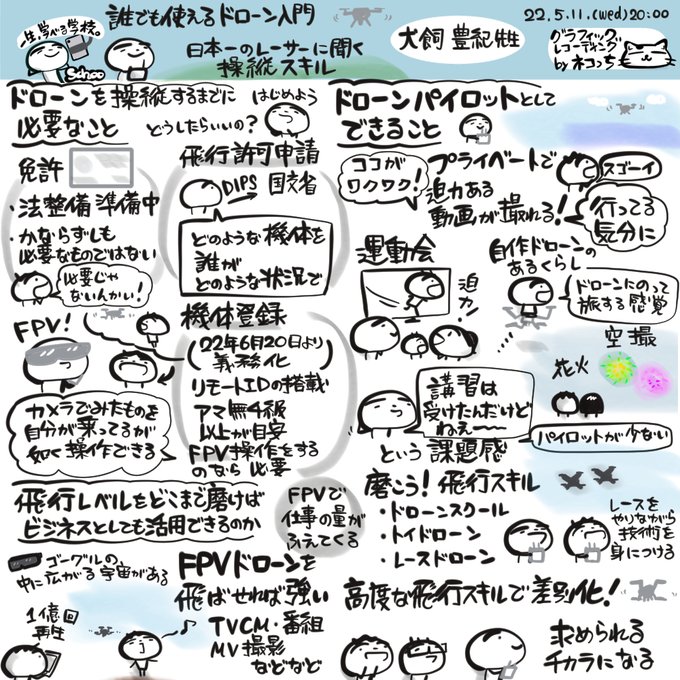 一生、学べる学校。
Schoo
誰でも使えるドローン入門
日本一のレーサーに聞く
操縦スキル
犬飼 豊紀 先生
22.5.11.(wed)20:00
グラフィック
レコーディング
by ネコっち
ドローンを操縦するまでに
必要なこと
はじめよう
どうしたらいいの?
免許
・法整備 準備中
・かならずしも
必要なものではない
必要じゃ
ないんかい!
飛行許可申請
DIPS → 国交省
どのような機体を
誰が
どのような状況で
FPV!
カメラでみたものを
自分が乗ってるが
如く操作できる
機体登録
22年6月20日より
義務化
リモートIDの搭載
アマ無4級
以上が目安
FPV操作をする
のなら必要
飛行レベルをどこまで磨けば
ビジネスとしても活用できるのか
FPVで
仕事の量が
ふえてくる
ゴーグルの
中に広がる宇宙がある
1億回
再生
FPVドローンを
飛ばせれば強い
TVCM・番組
MV撮影
などなど
ドローンパイロットとして
できること
ココが
ワクワク!
プライベートで
迫力ある
動画が撮れる!
スゴーイ
行ってる
気分に
運動会
迫力!
自作ドローンの
あるくらし
ドローンにのって
旅する感覚
空撮
花火
パイロットが少ない
講習は
受けたんだけど
ねぇ〜〜
という課題感
磨こう!飛行スキル
・ドローンスクール
・トイドローン
・レースドローン
レースを
やりながら
技術を
身につける
高度な飛行スキルで差別化!
求められる
チカラになる